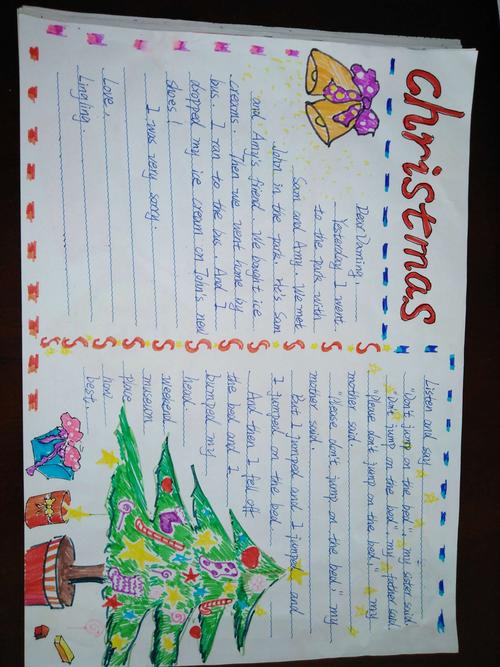 christmas
Dear Daming,
Yesterday I went
to the park with
Sam and Amy. We met
John in the park. He's Sam
and Amy's friend. We bought ice
creams. Then we went home by
bus. I ran to the bus. And I
dropped my ice cream on John's new
shoes!
I was very sorry.
Love,
Lingling
Listen and say
"Don't jump on the bed", my sister said.
"Don't jump on the bed", my father said.
"Please don't jump on the bed," my
mother said.
"Please don't jump on the bed," my
mother said.
But I jumped and I jumped and
I jumped on the bed.
And then I fell off
the bed and I
bumped my
head.
weekend
museum
place
how
best